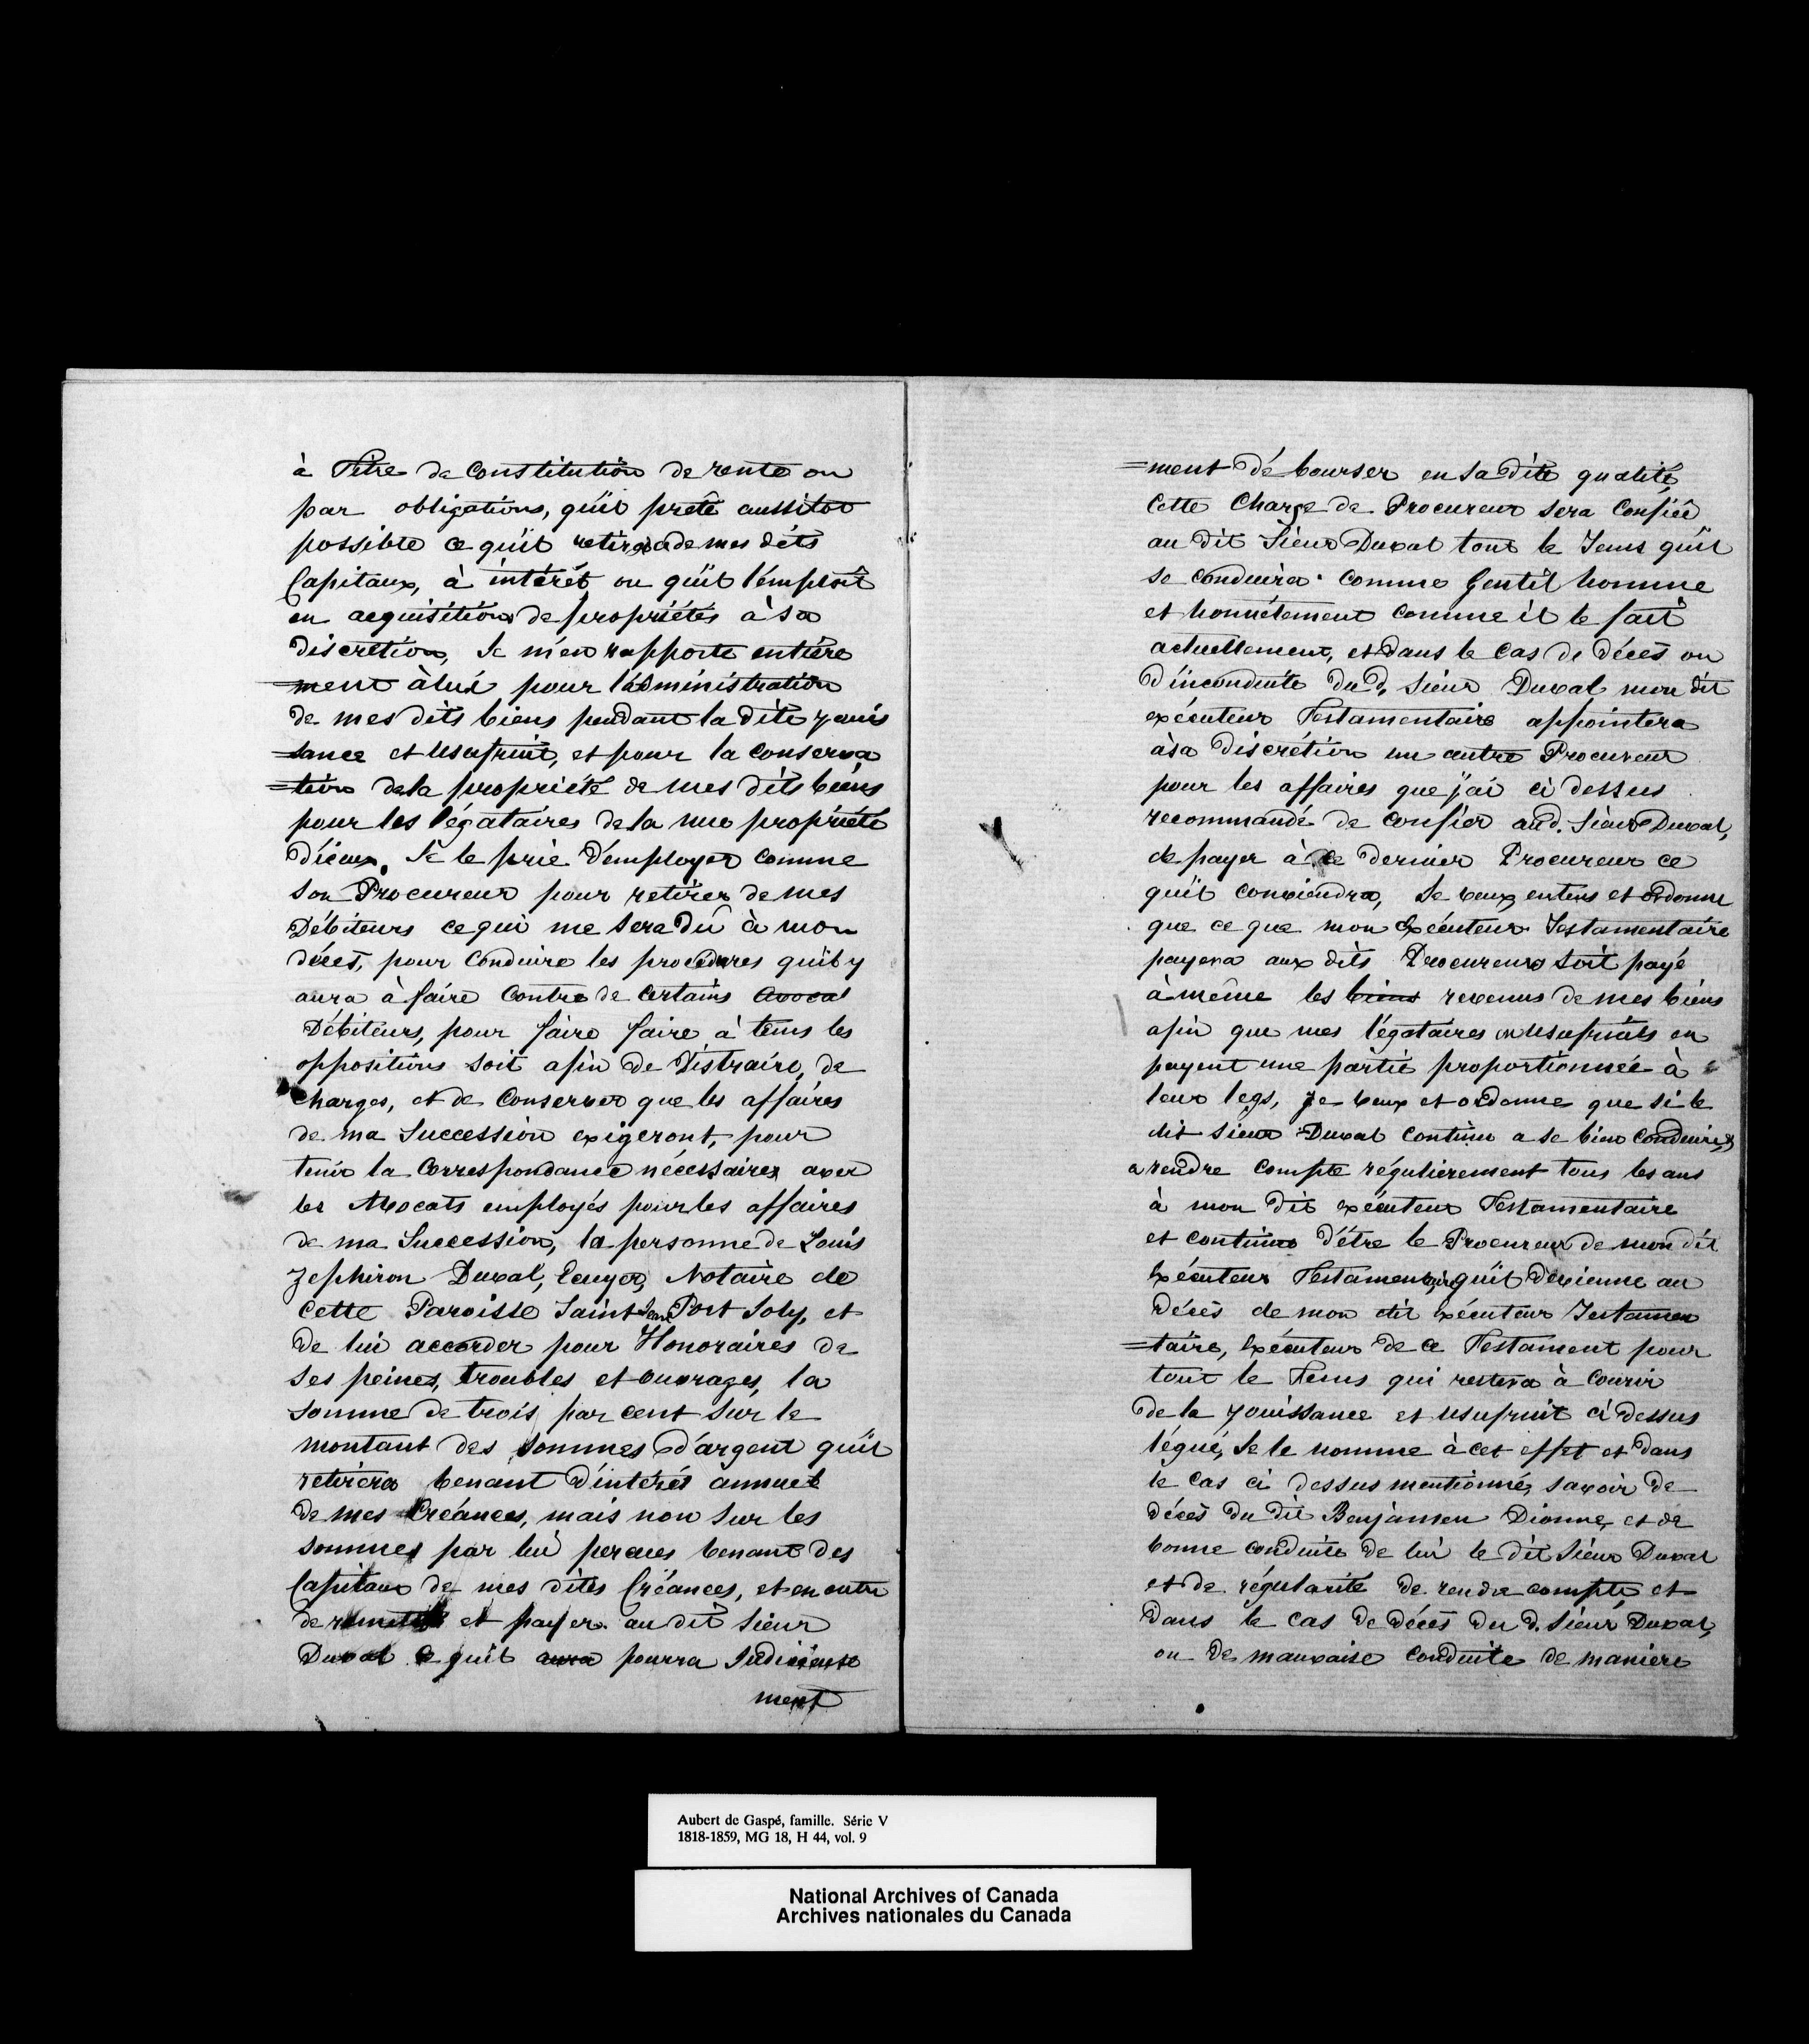 à Titre de Constitution de rente ou
par obligations, qu'il prete aussitot
possible ce qu'il retirera de mes dits
Capitaux, à intérêt ou qu'il l'emploit
en acquisitions de propriétés à sa
discretion, Je m'en rapporte entière
=ment à lui pour l'administration
de mes dits biens pendant la dite jouis
=sance et usufruit, et pour la conserva
=tion de la propriété de mes dits biens
pour les légataires de la nue propriété
d'iceux. Je le prie d'employer comme
son Procureur pour retirer de mes
Débiteurs ce qui me sera dû à mon
décès, pour Conduire les procédures qu'il y
aura à faire Contre de Certains Avocat
Débiteurs, pour faire faire à tems les
oppositions soit afin de Distraire, de
Charges, et de Conserver que les affaires
de ma Succession exigeront, pour
tenir la Correspondance nécessaires avec
les Avocats employés pour les affaires
de ma Succession, la personne de Louis
Zephiron Duval, Ecuyer, Notaire de
Cette Paroisse Saint Jean Port Joly, et
de lui accorder pour Honoraires de
ses peines, troubles et ouvrages, la
somme de trois par cent sur le
montant des sommes d'argent qu'il
retirera venant d'intérêt annuel
de mes Créances, mais non sur les
sommes par lui percues venant des
Capitaux de mes dites Créances, et en outre
de remettre et payer au dit Sieur
Duval ce qu'il aura pourra Judicieuse
ment
=ment débourser en sa dite qualité,
Cette Charge de Procureur sera Confiée
au dit Sieur Duval tout le Tems qu'il
se conduira comme Gentil homme
et honnêtement comme il le fait
actuellement, et dans le Cas de décès ou
d'inconduite du d. Sieur Duval mon dit
exécuteur Testamentaire appointera
à sa discrétion un autre Procureur
pour les affaires que j'ai ci dessus
recommandé de confier aud. Sieur Duval,
de payer à ce dernier Procureur ce
qu'il conviendra, Je veux, entens et ordonne
que ce que mon Exécuteur Testamentaire
payera aux dits Procureurs soit payé
à même les biens revenus de mes biens
afin que mes légataires en usufruits en
payent une partie proportionnée à
leur legs, Je veux et ordonne que si le
dit Sieur Duval Continu a se bien Conduire, &
a rendre Compte régulierement tous les ans
à mon dit exécuteur Testamentaire
et continue d'être le Procureur de mon dit
Exécuteur Testamentaire, qu'il devienne au
décès de mon dit Exécuteur Testamen
=taire, Exécuteur de ce Testament pour
tout le Tems qui restera à Courir
de la jouissance et usufruit ci dessus
légué, Je le nomme à cet effet et dans
le Cas ci dessus mentionné, savoir de
décès du dit Benjamen Dionne, et de
bonne conduite de lui le dit Sieur Duval
et de régularité de rendre compte et
dans le cas de décès du d. Sieur Duval,
ou de mauvaise Conduite de maniere
Aubert de Gaspé, famille. Série V
1818-1859, MG 18, H 44, vol. 9
National Archives of Canada
Archives nationales du Canada